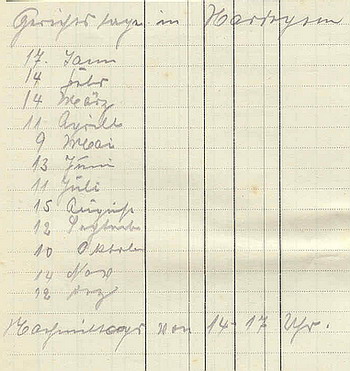 Gerichtstage in Hardegsen
17. Jann
14 Febr
14 März
11 Aprill
9 Mai
13 Juni
11 Juli
15 August
12 Septembe
10 Oktober
14 Nov
12 Dez
Nachmittags von 14-17 Uhr.